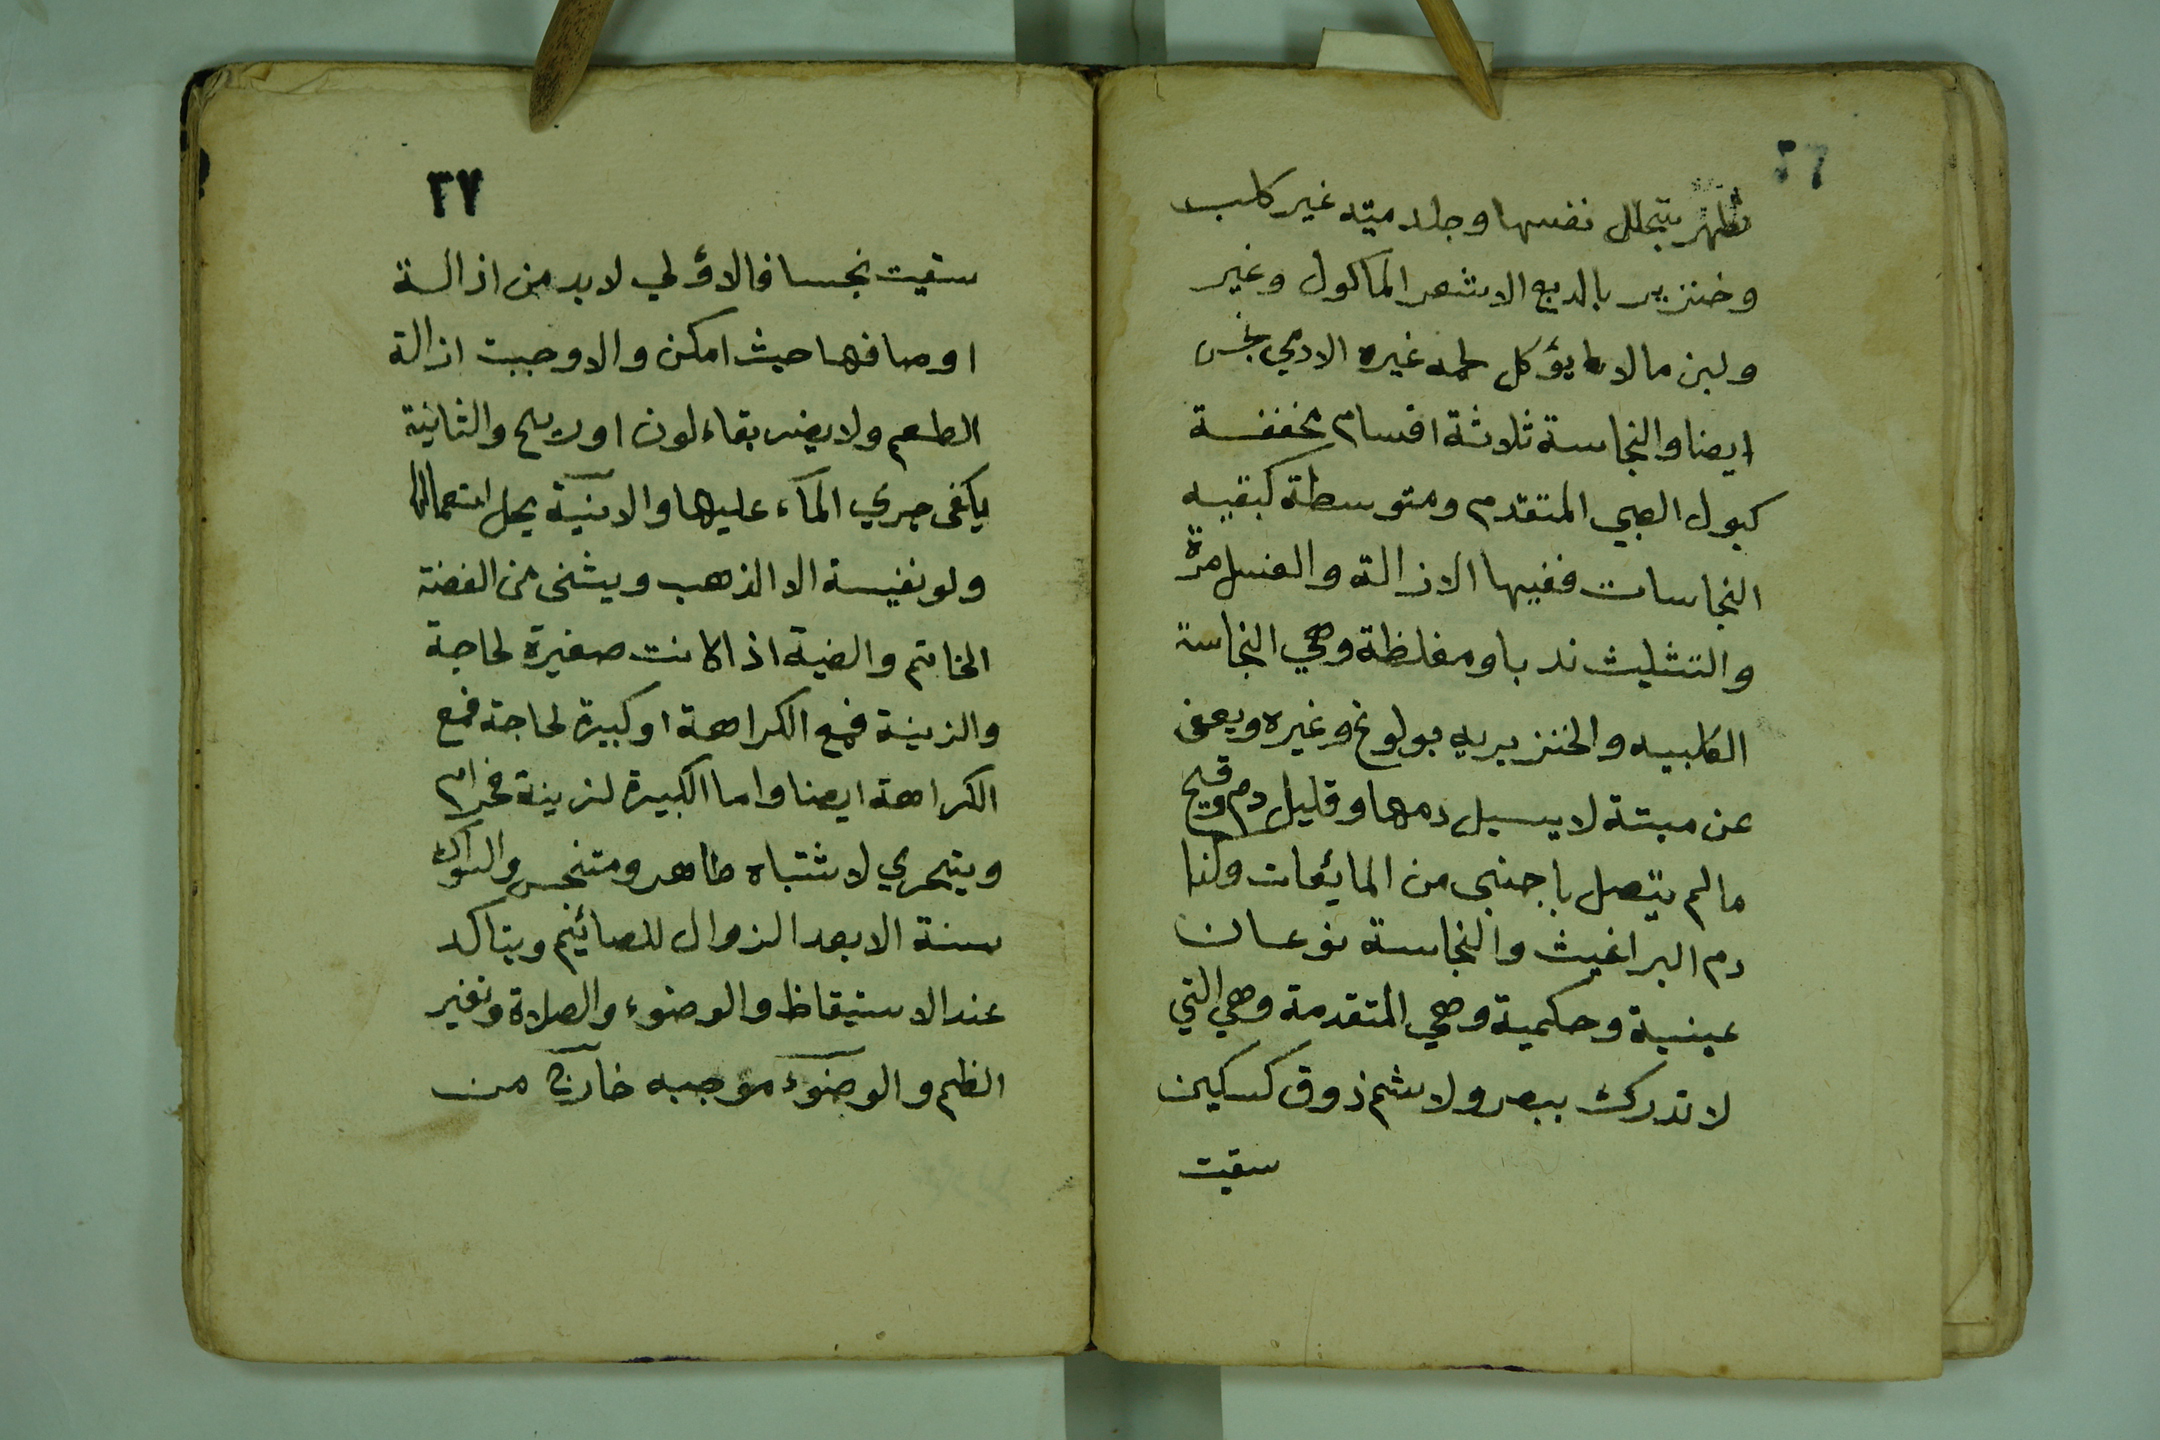 ٣٦
تطهر بتخلل نفسها وجلد ميته غير كلب
وخنزير بالدبع الا شعر الماكول وغير
ولبن مالا يؤكل لحمه غيره الادمي نجس
ايضا والنجاسة ثلاثة اقسام مخففة
كبول الصبي المتقدم ومتوسطة كبقيه
النجاسات ففيها الازالة والغسل مرة
والتثليث ندبا ومغلظة وهي النجاسة
الكلبيه والخنزيريه بولوغ وغيره ويعفى
عن ميتة لا يسيل دمها وقليل دم وقيح
مالم يتصل باجنبي من المائعات وكذا
دم البراغيث والنجاسة نوعان
عينية وحكمية وهي المتقدمة وهي التي
لا تدرك ببصر ولا شم ذوق كسكين
سقيت
٣٧
سقيت نجسا فالاؤلي لابد من ازالة
اوصافها حيث امكن والا وجبت ازالة
الطعم ولا يضر بقاء لون او ريح والثانية
يكفى جري المآء عليها والانية يحل استعمالها
ولو نفيسة الا الذهب ويثنى من الفضة
الخاتم والضبة اذا كانت صغيرة لحاجة
والزينة فمع الكراهة او كبيرة لحاجة فمع
الكراهة ايضا واما الكبيرة لزينة فحرام
ويتحري لاشتباه طاهر ومتنجس والسواك
سنة الا بعد الزوال للصائيم ويتاكد
عند الاستيقاظ والوضوء والصلاة وتغير
الظم والوضوء موجبه خارج من